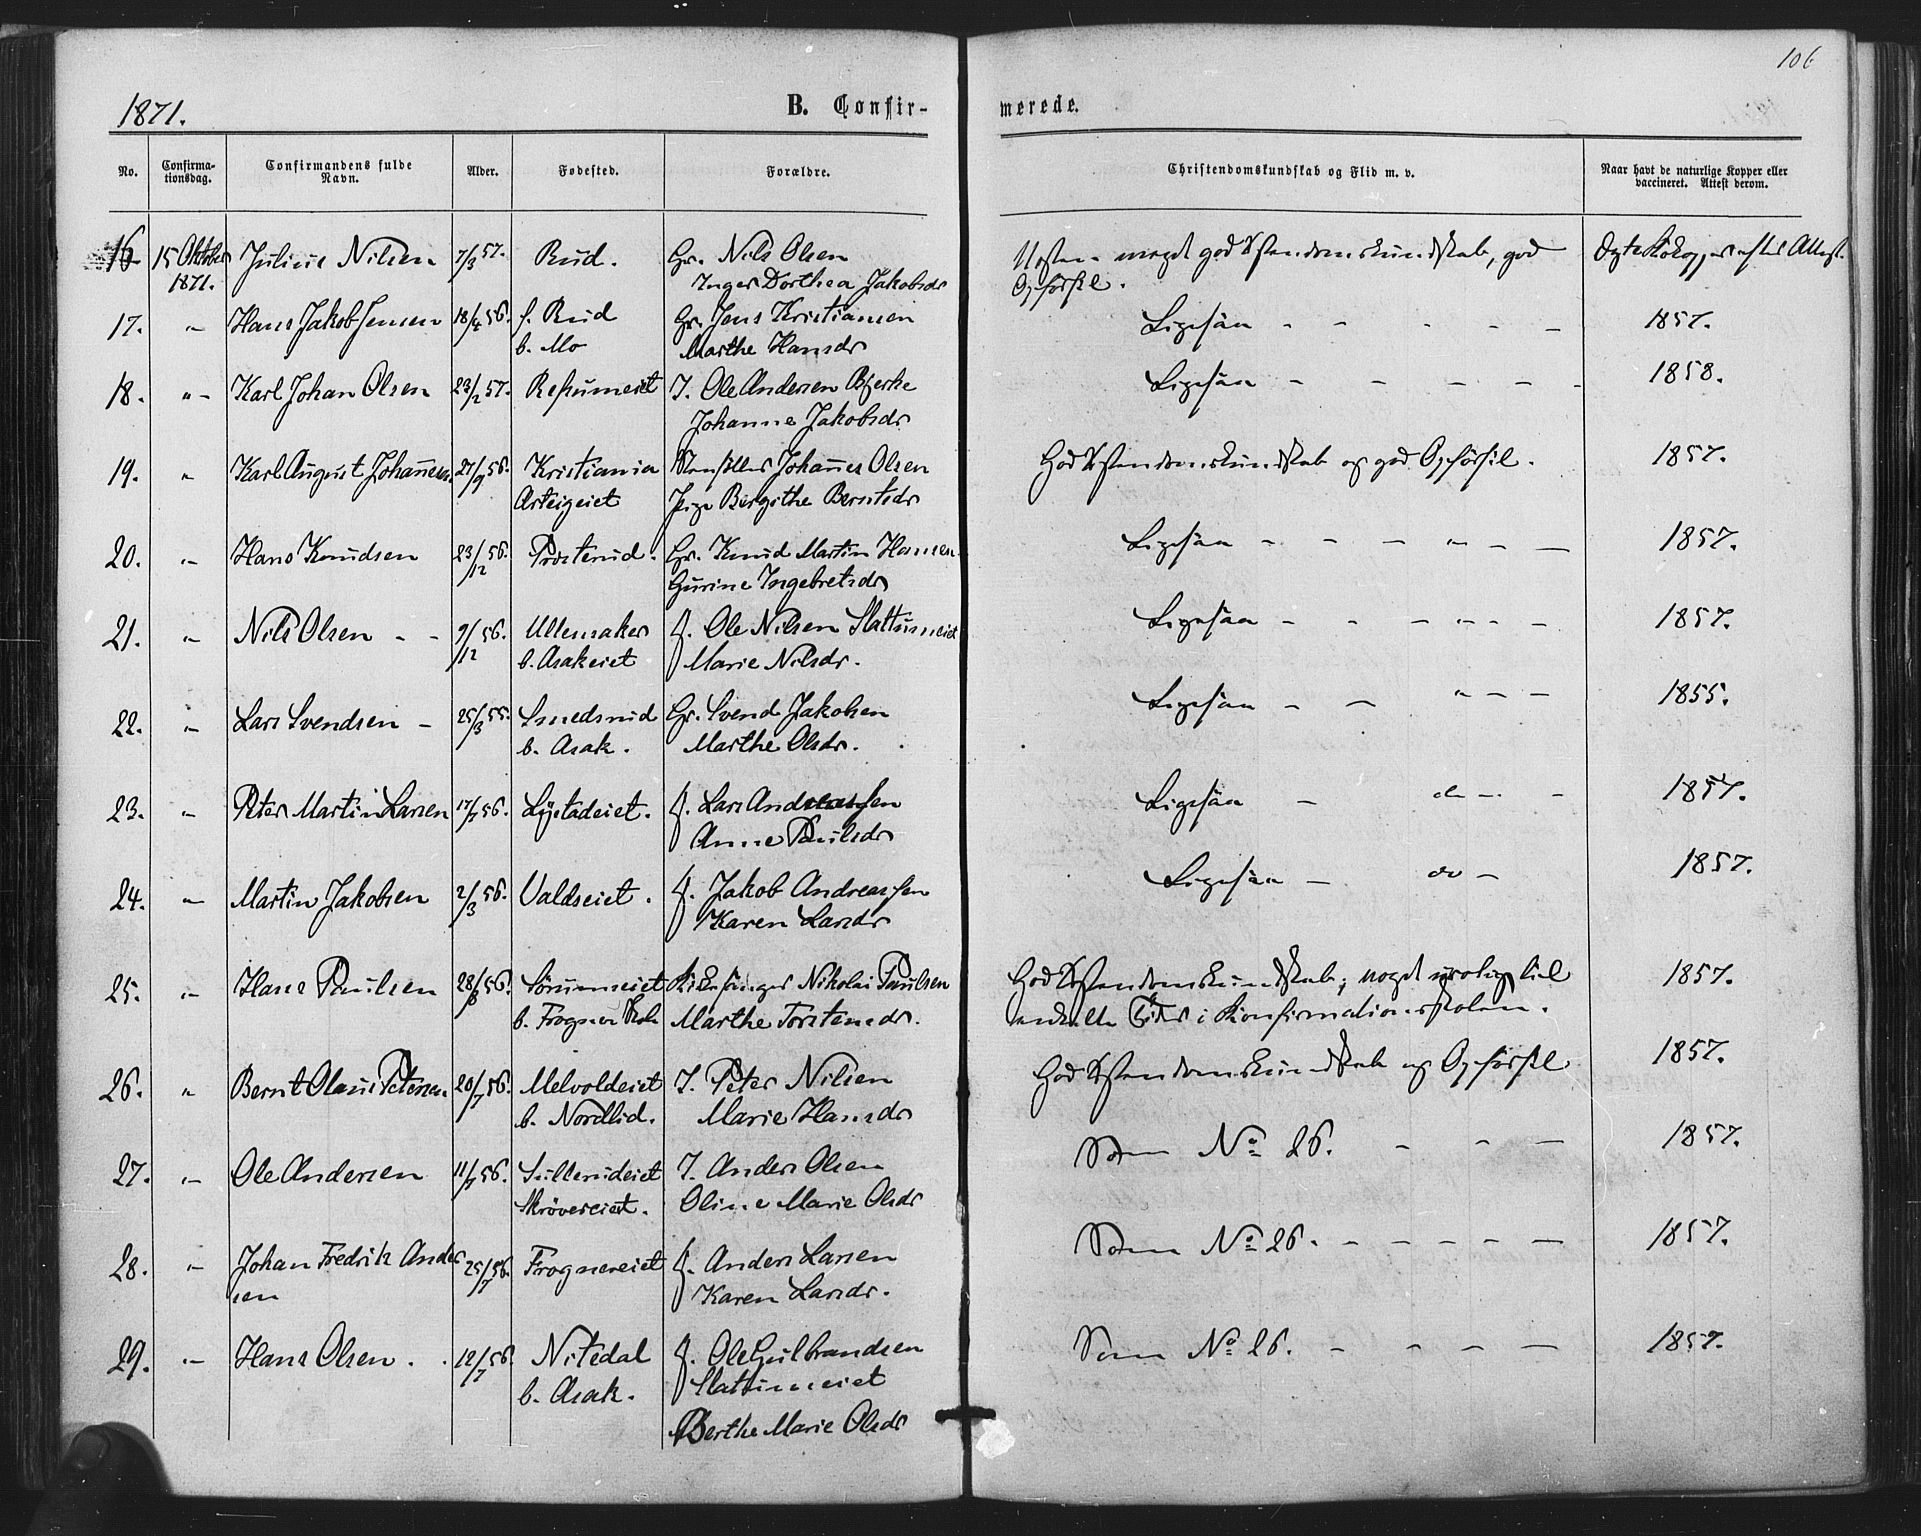 106
1871.
B. Confir-
merede.
No.
Confirma-
tionsdag.
Confirmandens fulde
Navn.
Alder.
Fødested.
Forældre.
Christendomskundskab og Flid m. v.
Naar havt de naturlige Kopper eller
vaccineret. Attest derom.
16 15 Oktober 1871. Julius Nilsen 7/3 57. Rud. Gr. Nils Olsen
Inger Dorthea Jakobsdr
meget god Xstendomskundskab, god
Opførsel.
17. " Hans Jakob Jensen 18/4 56. f. Rud
b. Mo
Gr. Jens Kristiansen
Marthe Hansdr
Ligesaa - - - - - 1857.
18. " Karl Johan Olsen 23/2 57. Refsumeiet I. Ole Andersen Bjerke
Johanne Jakobsdr
Ligesaa - - - - - 1858.
19. " Karl August Johannesen 27/9 56. Kristiania
Arteigeiet
Johannes Olsen
Birgithe Berntsdr
God Xstendomskundskab og god Opførsel. 1857.
20. " Hans Knudsen 23/12 56. Prosterud. Gr. Knud Martin Hansen
Gurine Ingebretsdr
Ligesaa - - - - - 1857.
21. " Nils Olsen - - 9/12 56. Ullensaker
b. Asakeiet
J. Ole Nilsen Slattumeiet
Marie Nilsdr.
Ligesaa - - - - - 1857.
22. " Lars Svendsen - 25/3 55. Smedsrud
b. Asak.
Gr. Svend Jakobsen
Marthe Olsdr.
Ligesaa - - " - - 1855.
23. " Peter Martin Larsen 17/7 56. Lystadeiet. J. Lars Andreassen
Anne Paulsdr
Ligesaa - do - - 1857.
24. " Martin Jakobsen 2/3 56. Valdseiet. J. Jakob Andreassen
Karen Larsdr
Ligesaa - do - 1857.
25. " Hans Paulsen 28/8 56. Sørumeiet
b. Frogner Skole
Kirkesanger Nikolai Paulsen
Marthe Torstensdr.
God Xstendomskundskab; noget urolig til
enkelte Tider i Konfirmationsskolen.
1857.
26. " Bernt Olaus Petersen 20/7 56. Melvoldeiet
b. Nordlid.
I. Peter Nilsen
Marie Hansdr
God Xstendomskundskab og Opførsel 1857.
27. " Ole Andersen 11/7 56. Sullerudeiet
Skrøvereiet.
I. Anders Olsen
Oline Marie Olsdr
Som No 26. - - - 1857.
28. " Johan Fredrik Ander
sen
25/7 56. Frognereiet J. Anders Larsen
Karen Larsdr.
Som No 26. - - - - - 1857.
29. " Hans Olsen. 12/7 56. Nitedal
b. Asak.
J. Ole Gulbrandsen
Slattumeiet
Berthe Marie Olsdr
Som No 26. - - - - 1857.